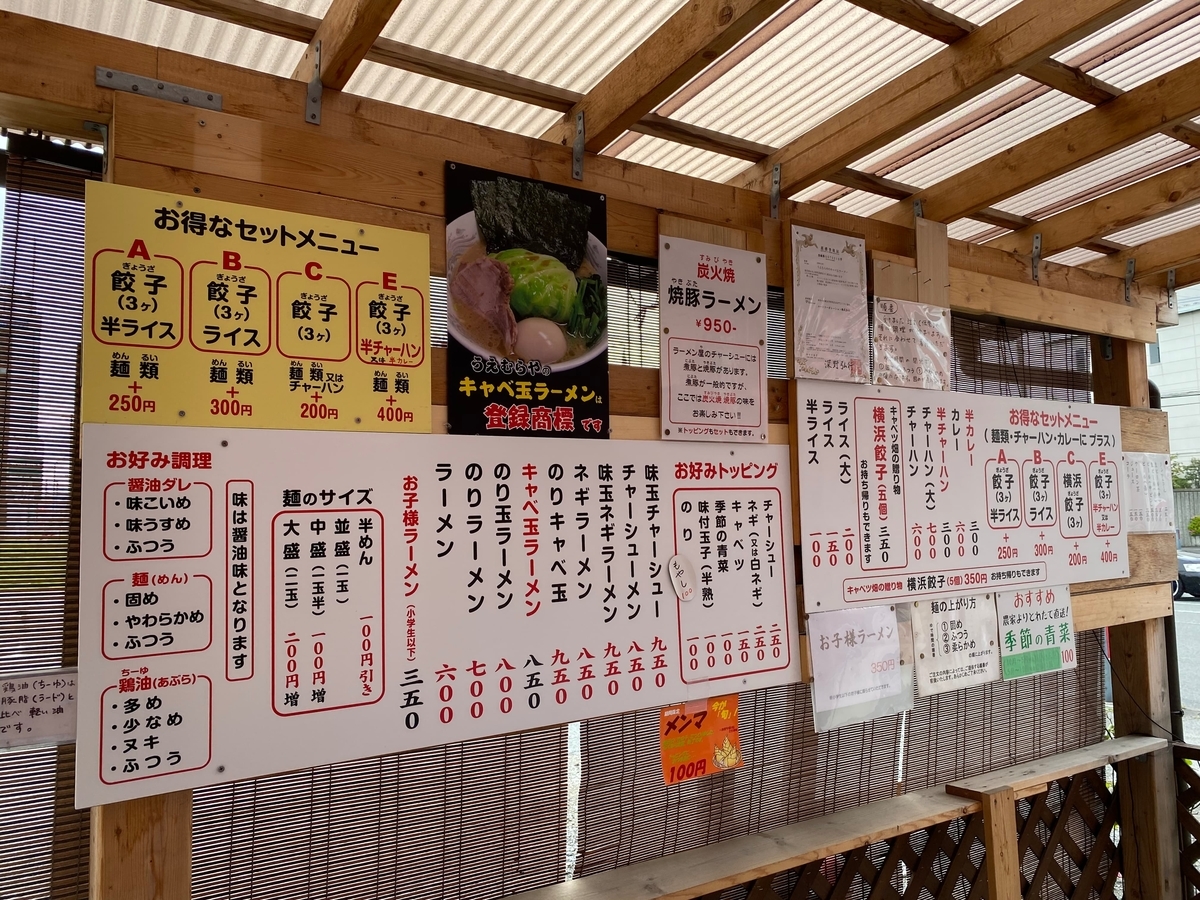 お得なセットメニュー
A
ぎょうざ
餃子
(3ヶ)
半ライス
めん るい
麺 類
+
250円
B
ぎょうざ
餃子
(3ヶ)
ライス
めん るい
麺 類
+
300円
C
ぎょうざ
餃子
(3ヶ)
めん るい
麺 類 又は
チャーハン
+
200円
E
ぎょうざ
餃子
(3ヶ)
半チャーハン
又は 半カレー
めん るい
麺 類
+
400円
うえむらやの
キャベ玉ラーメンは
登録商標です
すみ び やき
炭火焼
やき ぶた
焼豚ラーメン
¥950-
ラーメン屋のチャーシューには
煮豚と焼豚があります。
煮豚が一般的ですが、
ここでは炭火焼 焼豚の味を
お楽しみ下さい!!
※トッピングもセットもできます。
お好み調理
醤油ダレ
・味こいめ
・味うすめ
・ふつう
麺(めん)
・固め
・やわらかめ
・ふつう
ちーゆ
鶏油(あぶら)
・多め
・少なめ
・ヌキ
・ふつう
味は醤油味となります
麺のサイズ
半めん 一00円引き
並盛(一玉)
中盛(一玉半) 一00円増
大盛(二玉) 二00円増
味玉チャーシュー 九五0
チャーシューメン 八五0
味玉ネギラーメン 九五0
ネギラーメン 八五0
のりキャベ玉 九五0
キャベ玉ラーメン 八五0
のり玉ラーメン 八00
のりラーメン 七00
ラーメン 六00
お子様ラーメン(小学生以下) 三五0
お好みトッピング
チャーシュー 二五0
ネギ(又は白ネギ) 二五0
キャベツ 一五0
季節の青菜 一00
味付玉子(半熟) 一00
のり 一00
もやし
100
メンマ
今が旬!
100円
半カレー 三00
カレー 六00
半チャーハン 三00
チャーハン(大) 七00
チャーハン 六00
キャベツ畑の贈り物
横浜餃子(五個) 三五0
お持ち帰りもできます
ライス(大) 二00
ライス 一五0
半ライス 一00
お得なセットメニュー
(麺類・チャーハン・カレーに プラス)
A
ぎょうざ
餃子
(3ヶ)
半ライス
+
250円
B
ぎょうざ
餃子
(3ヶ)
ライス
+
300円
C
横浜
ぎょうざ
餃子
(3ヶ)
+
200円
E
ぎょうざ
餃子
(3ヶ)
半チャーハン
又は
半カレー
+
400円
キャベツ畑の贈り物 横浜餃子(5個)350円 お持ち帰りもできます
お子様ラーメン
350円
麺の上がり方
①固め
②ふつう
③柔らかめ
おすすめ
農家よりとれたて直送!
季節の青菜
100
鶏油(ちーゆ)は
豚脂(ラード)と
比べ 軽い油
です。